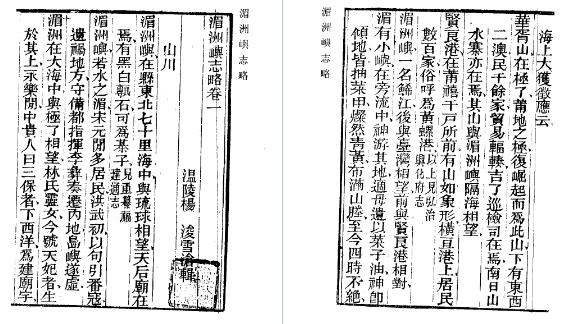 湄洲嶼志略
湄洲嶼志略卷一
溫陵楊 浚雪滄輯
山川
湄洲嶼在縣東北七十里海中與琉球相望天后廟在
焉有黑白石可為棊子見重纂福建通志
湄洲嶼若水之湄宋元閒多居民洪武初以句引番寇
遺禍地方守備都指揮李彝奏遷內地島嶼遂虛
湄洲在大海中與極了相望林氏靈女今號天妃者生
於其上示樂閒中貴人曰三保者下西洋為建廟宇
湄洲嶼志略
海上大獲徵應云
華胥山在極了莆地之極復崛起而為此山下有東西
二澳民千餘家貿易輻輳吉了巡檢司在焉南日山
水寨亦在焉其山與湄洲嶼隔海相望
賢良港在莆禧千戶所前有山如象形橫亙港上居民
數百家俗呼為黃螺港以上見弘治興化府志
湄洲嶼一名鯑江後與臺灣相望前與賢良港相對
湄有小嶼在旁流中神游其地適母遺以菜子油神卽
傾地皆抽菜甲燦然青黃布滿山塍至今四時不絕